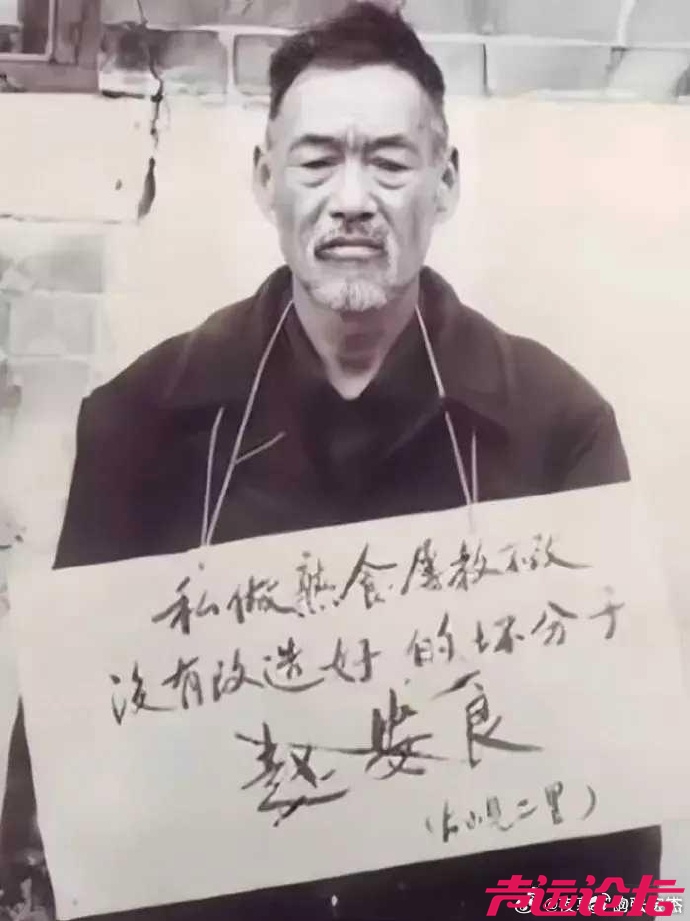 私做熟食屡教不改
没有改造好的坏分子
赵安良
二里）
声远论坛